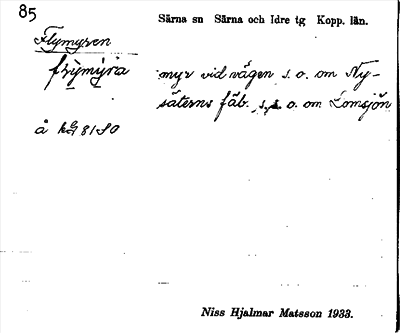 85
Särna sn Särna och Idre tg Kopp. län.
Flymyren
myr vid vägen s. o. om Ny-
säterns fäb. s. o. om Lomsjön
å
Niss Hjalmar Matsson 1933.